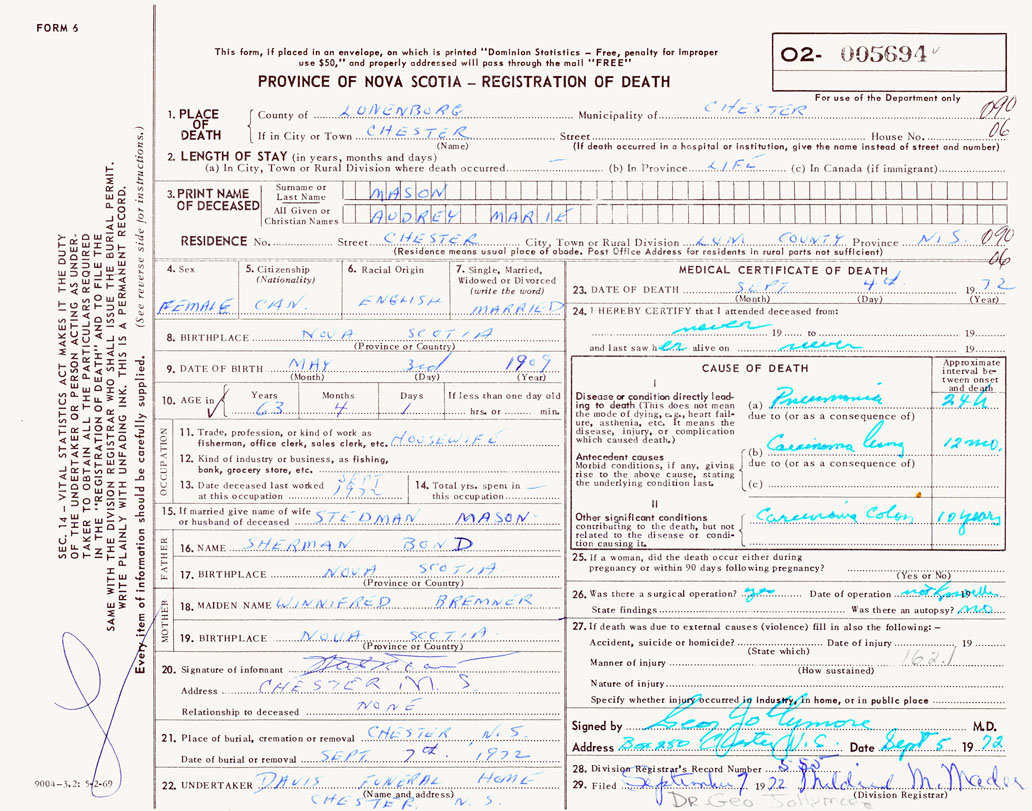 FORM 6
This form, if placed in an envelope, on which is printed "Dominion Statistics – Free, penalty for improper
use $50," and properly addressed will pass through the mail "FREE"
PROVINCE OF NOVA SCOTIA – REGISTRATION OF DEATH
O2- 005694
For use of the Department only
SEC. 14 – VITAL STATISTICS ACT MAKES IT THE DUTY
OF THE UNDERTAKER OR PERSON ACTING AS UNDER-
TAKER TO OBTAIN ALL THE PARTICULARS REQUIRED
IN THE "REGISTRATION OF DEATH" AND FILE THE
SAME WITH THE DIVISION REGISTRAR WHO SHALL ISSUE THE BURIAL PERMIT.
WRITE PLAINLY WITH UNFADING INK. THIS IS A PERMANENT RECORD.
Every item of information should be carefully supplied. (See reverse side for instructions.)
1. PLACE OF DEATH
County of LUNENBURG Municipality of CHESTER 090
If in City or Town CHESTER Street House No. 06
(Name) (If death occurred in a hospital or institution, give the name instead of street and number)
2. LENGTH OF STAY (in years, months and days)
(a) In City, Town or Rural Division where death occurred – (b) In Province LIFE (c) In Canada (if immigrant)
3. PRINT NAME OF DECEASED
Surname or Last Name MASON
All Given or Christian Names AUDREY MARIE
RESIDENCE No. Street CHESTER City, Town or Rural Division LUN. COUNTY Province N.S. 090
(Residence means usual place of abode. Post Office Address for residents in rural parts not sufficient) 06
4. Sex FEMALE
5. Citizenship (Nationality) CAN.
6. Racial Origin ENGLISH
7. Single, Married, Widowed or Divorced (write the word) MARRIED
8. BIRTHPLACE NOVA SCOTIA
(Province or Country)
9. DATE OF BIRTH MAY 3rd 1909
(Month) (Day) (Year)
10. AGE in Years 63 Months 4 Days 1 If less than one day old hrs. or min.
OCCUPATION
11. Trade, profession, or kind of work as
fisherman, office clerk, sales clerk, etc. HOUSEWIFE
12. Kind of industry or business, as fishing,
bank, grocery store, etc.
13. Date deceased last worked at this occupation SEPT 1972
14. Total yrs. spent in this occupation –
15. If married give name of wife
or husband of deceased STEDMAN MASON
FATHER
16. NAME SHERMAN BOND
17. BIRTHPLACE NOVA SCOTIA
(Province or Country)
MOTHER
18. MAIDEN NAME WINNIFRED BREMNER
19. BIRTHPLACE NOVA SCOTIA
(Province or Country)
20. Signature of informant
Address CHESTER N. S
Relationship to deceased NONE
21. Place of burial, cremation or removal CHESTER, N.S.
Date of burial or removal SEPT. 7th 1972
22. UNDERTAKER DAVIS FUNERAL HOME
(Name and address)
CHESTER N. S.
9004-3.2: 5-2-69
MEDICAL CERTIFICATE OF DEATH
23. DATE OF DEATH SEPT 4th 1972
(Month) (Day) (Year)
24. I HEREBY CERTIFY that I attended deceased from:
never 19 to 19
and last saw her alive on never 19
CAUSE OF DEATH
Approximate interval between onset and death
I
Disease or condition directly leading to death (This does not mean the mode of dying, e.g., heart failure, asthenia, etc. It means the disease, injury, or complication which caused death.)
(a) Pneumonia 24h
due to (or as a consequence of)
Antecedent causes
Morbid conditions, if any, giving rise to the above cause, stating the underlying condition last.
(b) Carcinoma lung 12 mo.
due to (or as a consequence of)
(c)
II
Other significant conditions
contributing to the death, but not related to the disease or condition causing it.
Carcinoma Colon 10 years
25. If a woman, did the death occur either during
pregnancy or within 90 days following pregnancy?
(Yes or No)
26. Was there a surgical operation? yes Date of operation 19
State findings Was there an autopsy? no
27. If death was due to external causes (violence) fill in also the following: –
Accident, suicide or homicide? Date of injury 19
(State which)
Manner of injury 162.1
(How sustained)
Nature of injury
Specify whether injury occurred in industry, in home, or in public place
Signed by Geo Jollymore M.D.
Address Box 250 Chester N.S. Date Sept 5 1972
28. Division Registrar's Record Number 555
29. Filed September 7 1972 Mildred M. Mader
(Division Registrar)
Dr Geo Jollymore